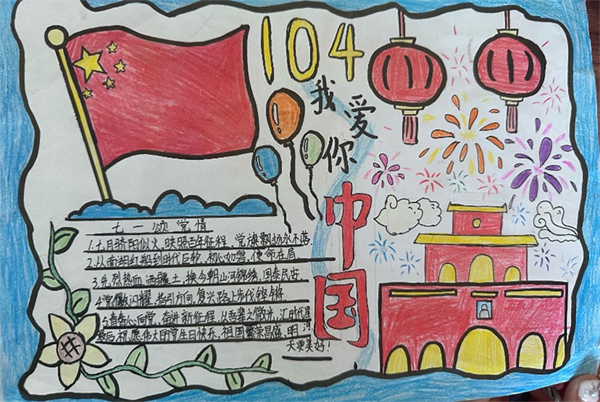 104
我爱你
中国
七一颂党情
1.七月骄阳似火,映照百年征程,党旗飘扬永不落
2.从南湖红船到时代巨轮,初心如磐,使命在肩
3.先烈热血洒疆土,换今朝山河锦绣,国泰民安
4.党徽闪耀,指引方向,复兴路上步伐铿锵
5.青春心向党,奋进新征程,以吾辈之微光,汇时代星河
最后祝愿伟大的党生日快乐,祖国繁荣昌盛,明
天更美好!